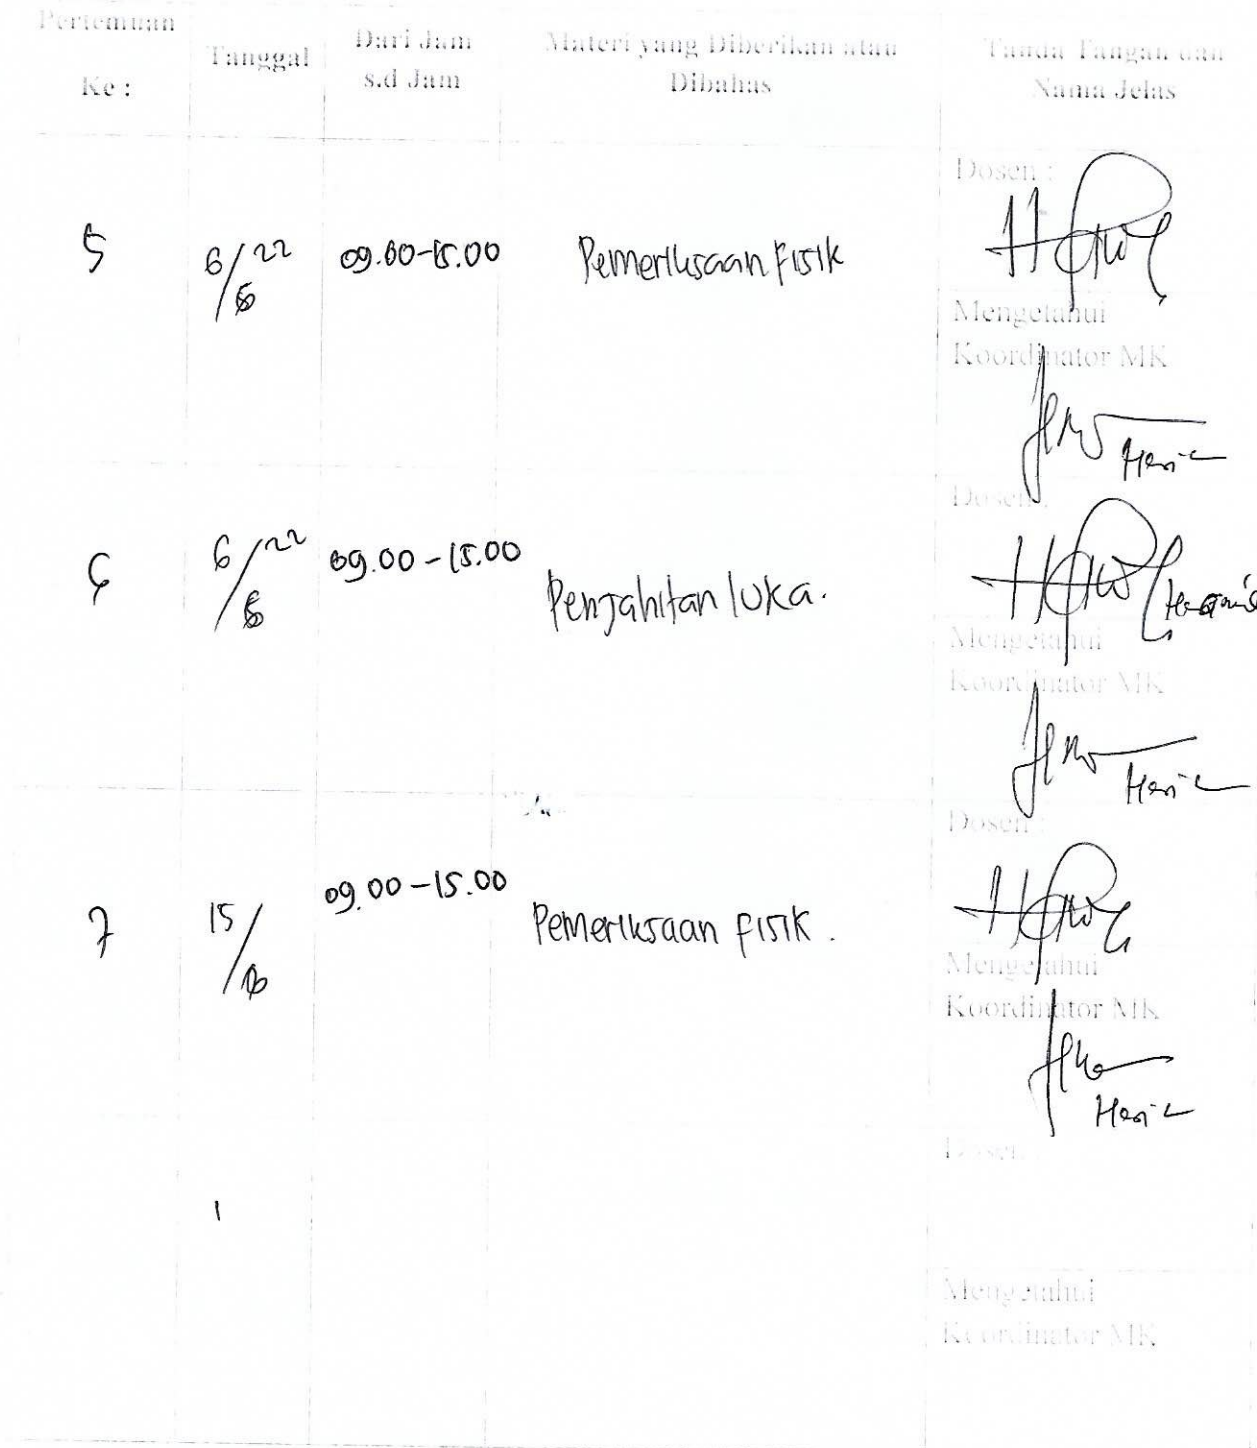 Pertemuan
Ke :
Tanggal
Dari Jam
s.d Jam
Materi yang Diberikan atau
Dibahas
Tanda Tangan dan
Nama Jelas
5
6/6 22
09.00-15.00
Pemeriksaan Fisik
Dosen :
Mengetahui
Koordinator MK
Heri
6
6/6 22
09.00-15.00
Penjahitan luka.
Dosen :
Mengetahui
Koordinator MK
Heri
7
15/6
09.00-15.00
Pemeriksaan Fisik.
Dosen :
Mengetahui
Koordinator MK
Heri
Dosen
Mengetahui
Koordinator MK